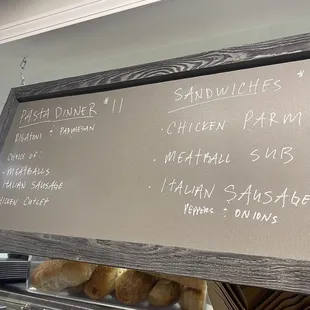 PASTA DINNER $11
RIGATONI & PARMESAN
CHOICE OF:
• MEATBALLS
ITALIAN SAUSAGE
CHICKEN CUTLET
SANDWICHES $
• CHICKEN PARM
• MEATBALL SUB
• ITALIAN SAUSAGE
PEPPERS & ONIONS